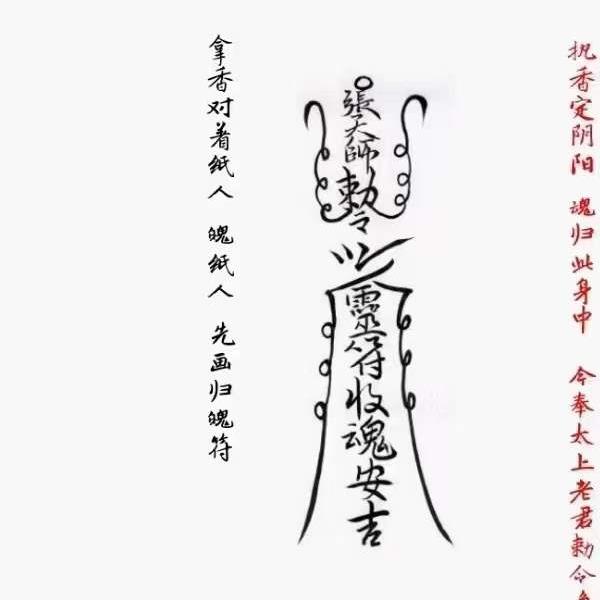 执香定阴阳 魂归此身中 今奉太上老君勅令
張天師勅令
靈符收魂安吉
拿香对着纸人 魄纸人 先画归魄符